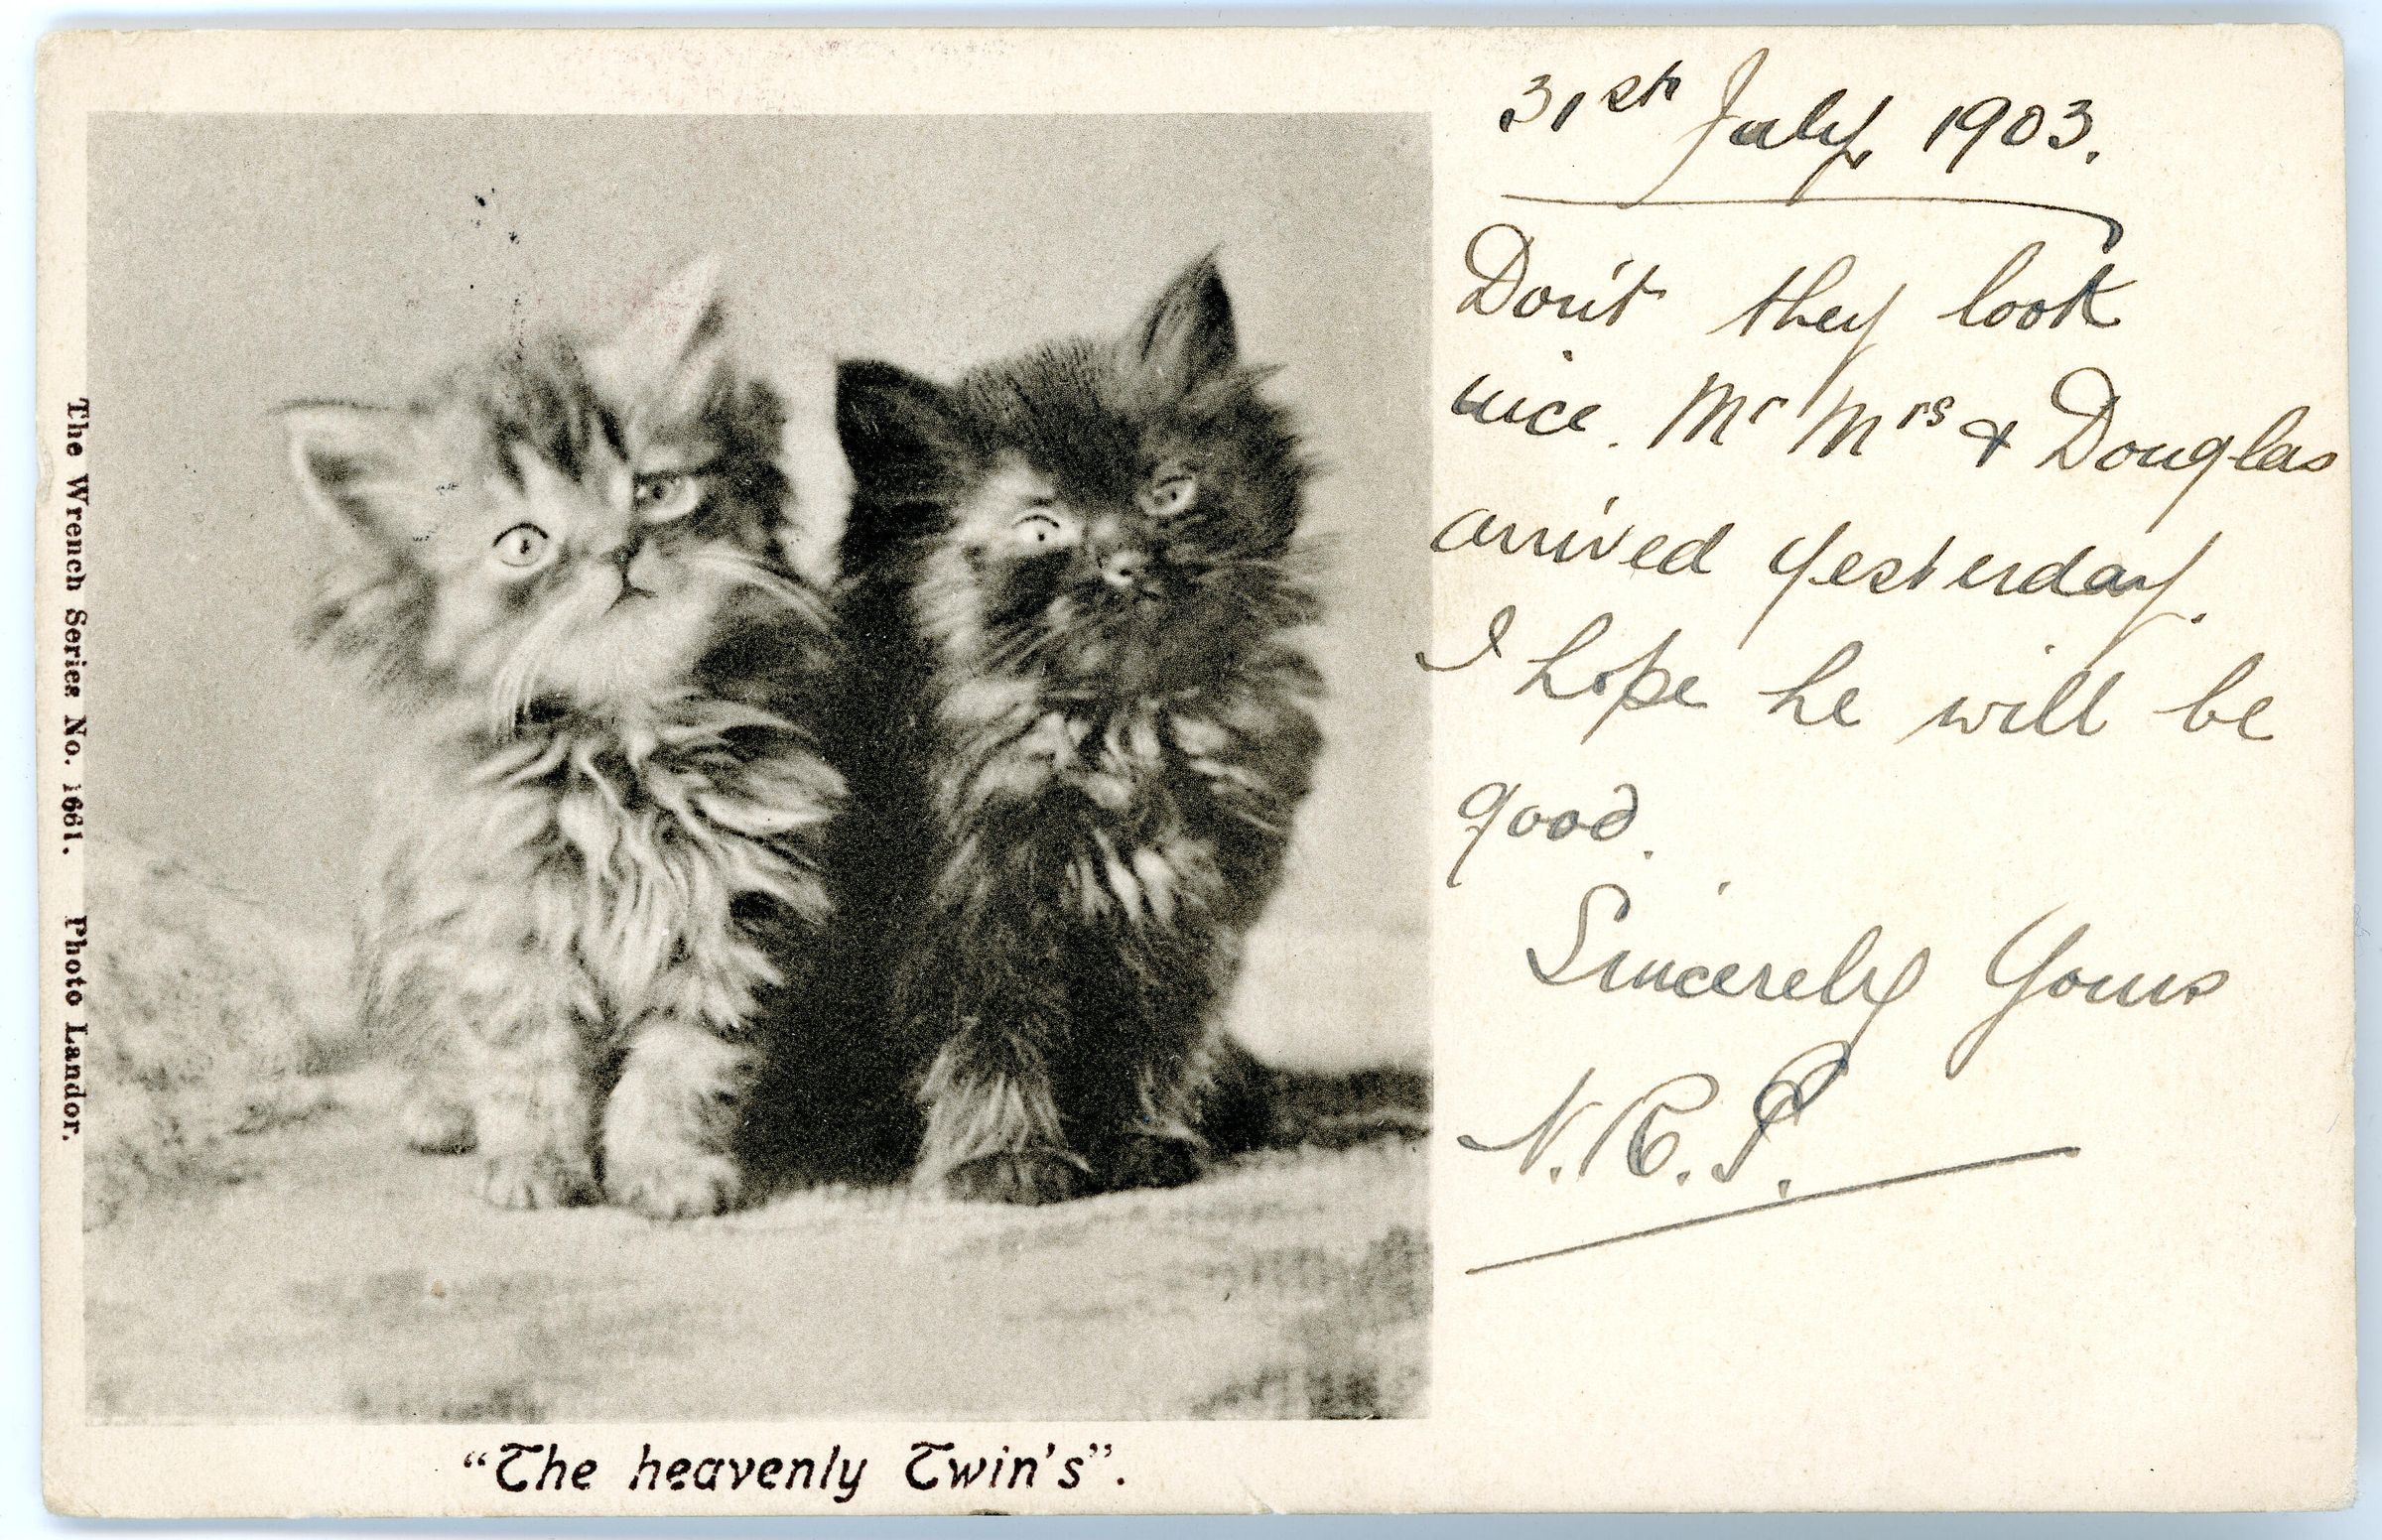 The Wrench Series No. 1661. Photo Landor.
"The heavenly Twin's".
31st July 1903.
Don't they look
nice. Mr Mrs & Douglas
arrived yesterday.
I hope he will be
good.
Sincerely Yours
N.R.P.